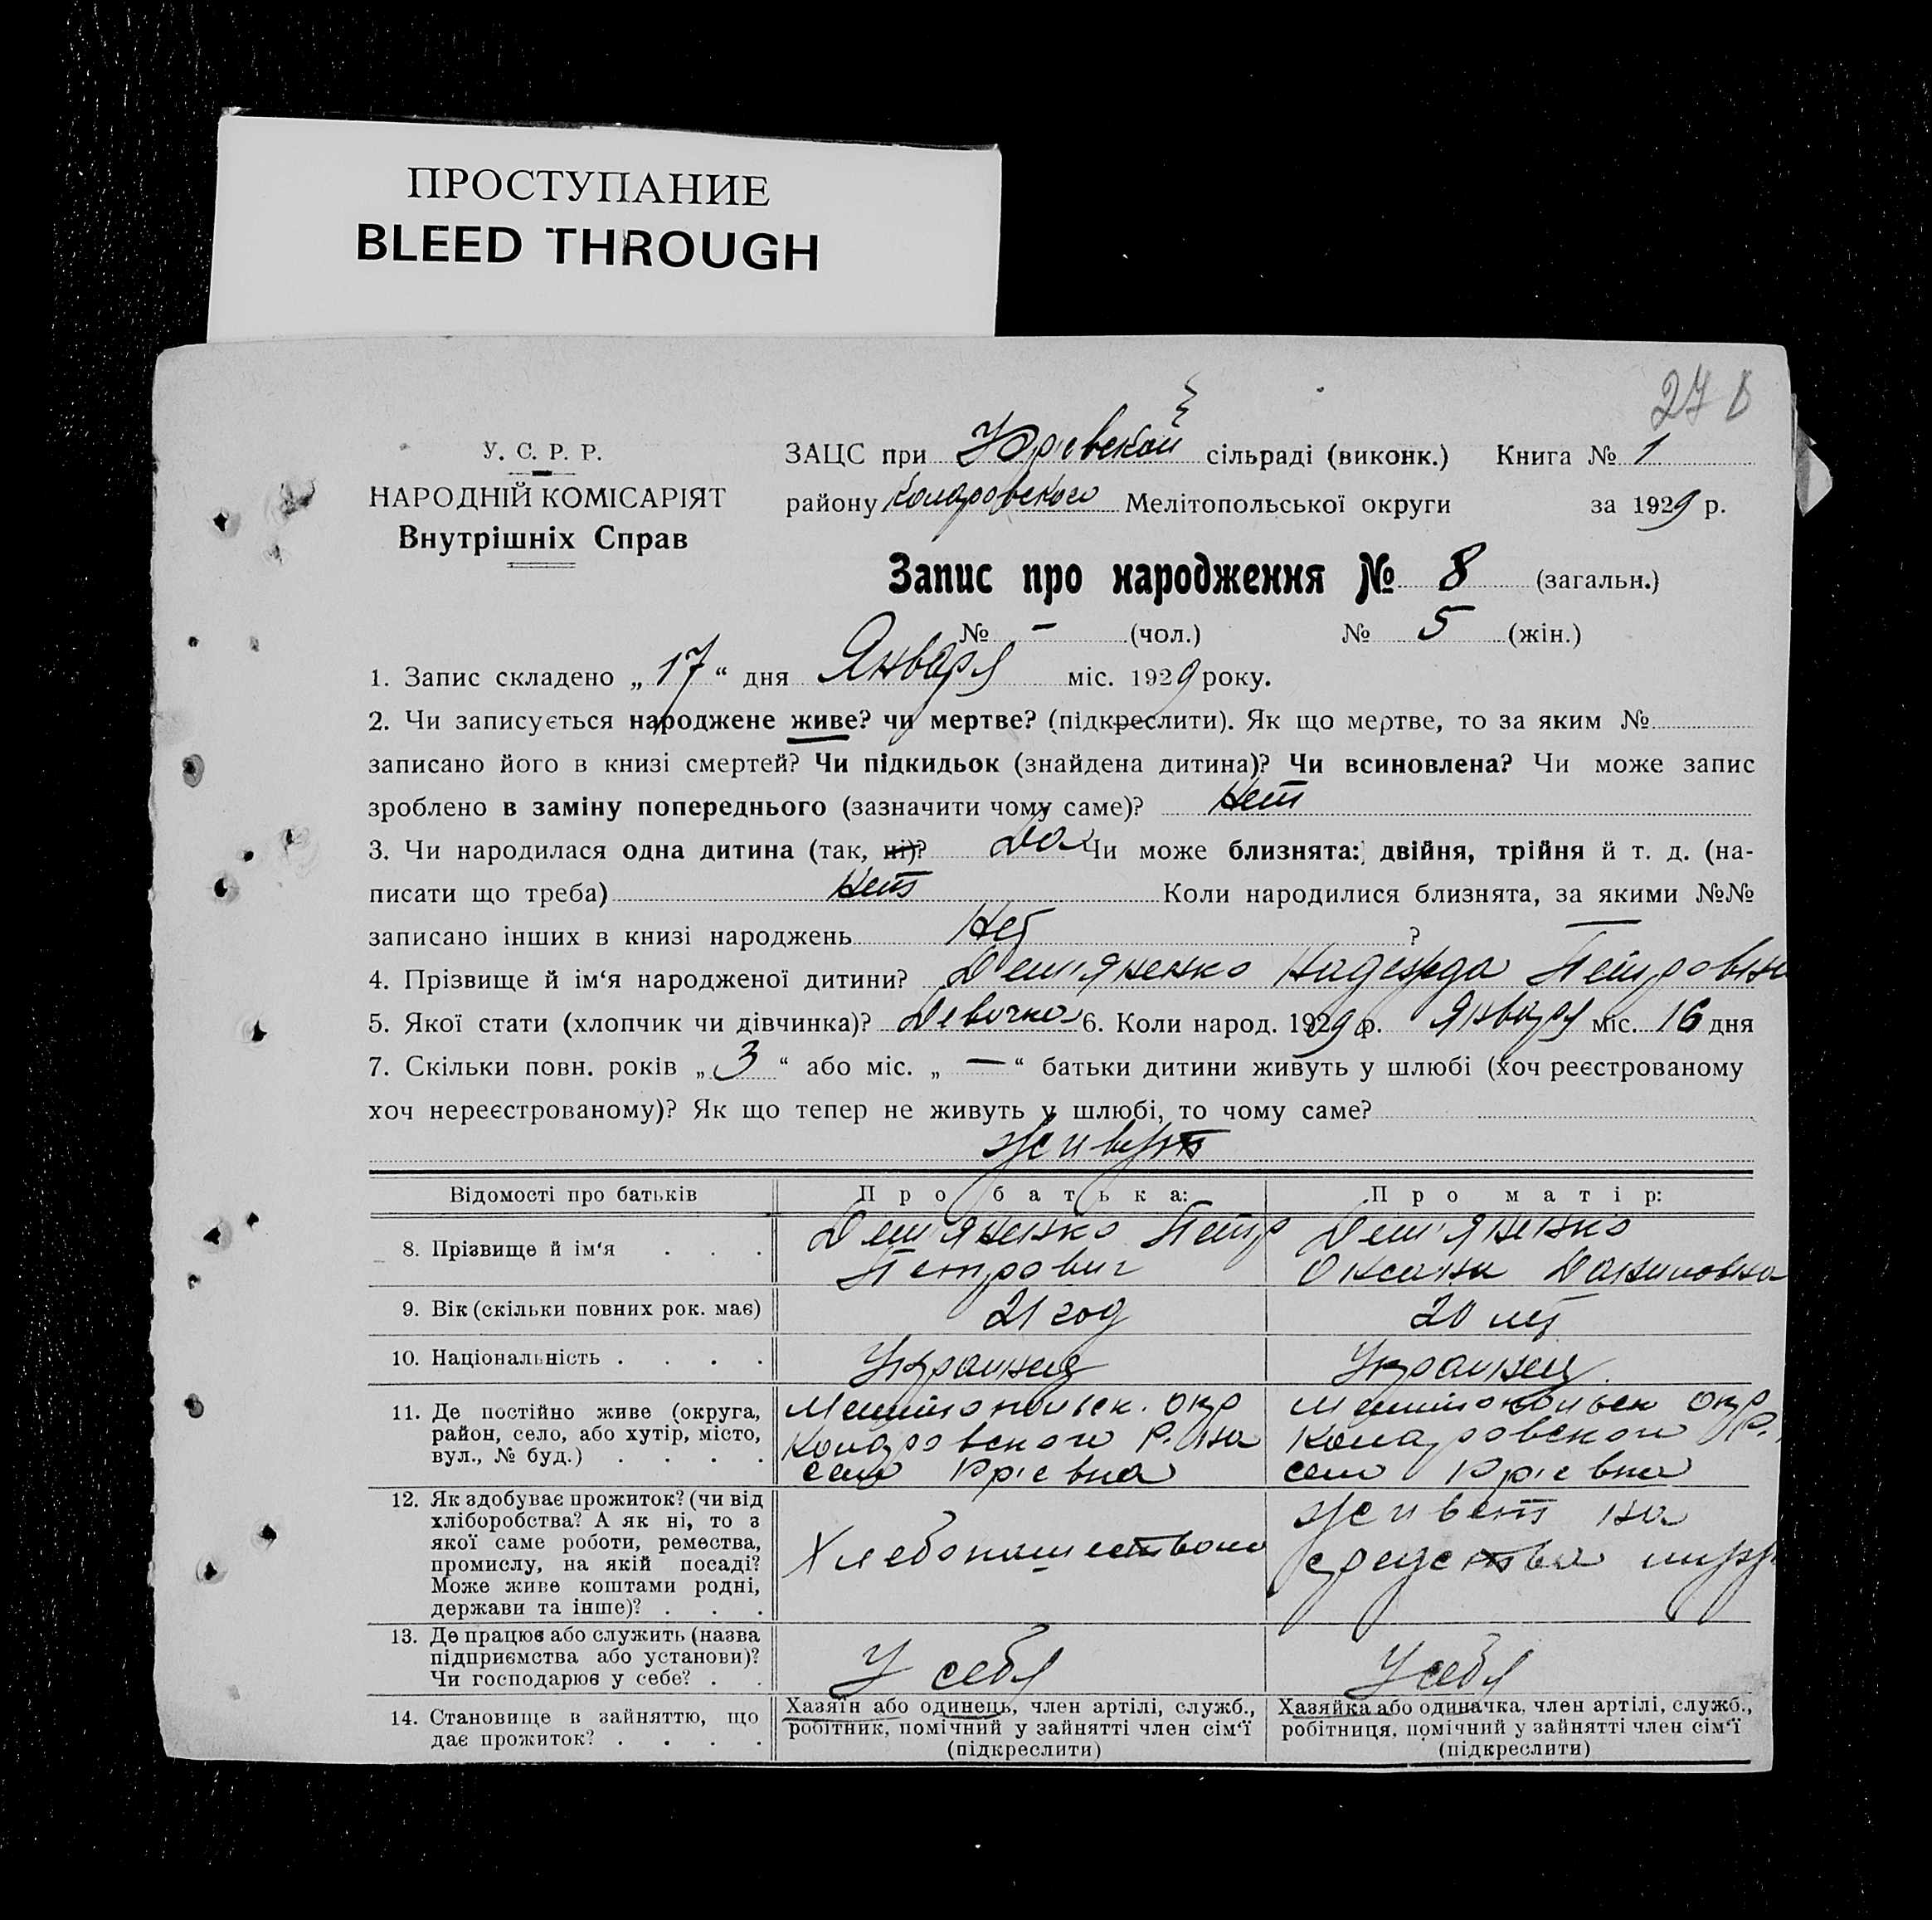 ПРОСТУПАНИЕ
BLEED THROUGH
27
У. С. Р. Р.
НАРОДНІЙ КОМІСАРІЯТ
Внутрішніх Справ
ЗАЦС при Юрієвской сільраді (виконк.) Книга № 1
району Коларовского Мелітопольської округи за 1929 р.
Запис про народження № 8 (загальн.)
№ – (чол.) № 5 (жін.)
1. Запис складено „17“ дня Января міс. 1929 року.
2. Чи записується народжене живе? чи мертве? (підкреслити). Як що мертве, то за яким №
записано його в книзі смертей? Чи підкидьок (знайдена дитина)? Чи всиновлена? Чи може запис
зроблено в заміну попереднього (зазначити чому саме)? Нет
3. Чи народилася одна дитина (так, ні)? Да Чи може близнята: двійня, трійня й т. д. (на-
писати що треба) Нет Коли народилися близнята, за якими №№
записано інших в книзі народжень Нет ?
4. Прізвище й ім‘я народженої дитини? Дем'яненко Надежда Петровна
5. Якої стати (хлопчик чи дівчинка)? Девочка 6. Коли народ. 1929 р. Января міс. 16 дня
7. Скільки повн. років „3“ або міс. „—“ батьки дитини живуть у шлюбі (хоч реєстрованому
хоч нереєстрованому)? Як що тепер не живуть у шлюбі, то чому саме?
живут
Відомості про батьків Про батька: Про матір:
8. Прізвище й ім‘я . . . Дем'яненко Петр Дем'яненко
Петрович Оксана Даниловна
9. Вік (скільки повних рок. має) 21 год 20 лет
10. Національність . . . . Украинец Украинец
11. Де постійно живе (округа, Мелитопольск. окр Мелитопольск окр
район, село, або хутір, місто, Коларовского Р-на Коларовского Р.
вул., № буд.) . . . . село Юрієвка село Юрієвка
12. Як здобуває прожиток? (чи від
хліборобства? А як ні, то з живет на
якої саме роботи, ремества, Хлебопашеством средства
промислу, на якій посаді?
Може живе коштами родні,
держави та інше)? . . .
13. Де працює або служить (назва
підприємства або установи)? У себя У себя
Чи господарює у себе? . .
14. Становище в зайняттю, що Хазяїн або одинець, член артілі, служб., Хазяйка або одиначка, член артілі, служб.,
дає прожиток? . . . . робітник, помічний у зайнятті член сім‘ї робітниця, помічний у зайнятті член сім‘ї
(підкреслити) (підкреслити)